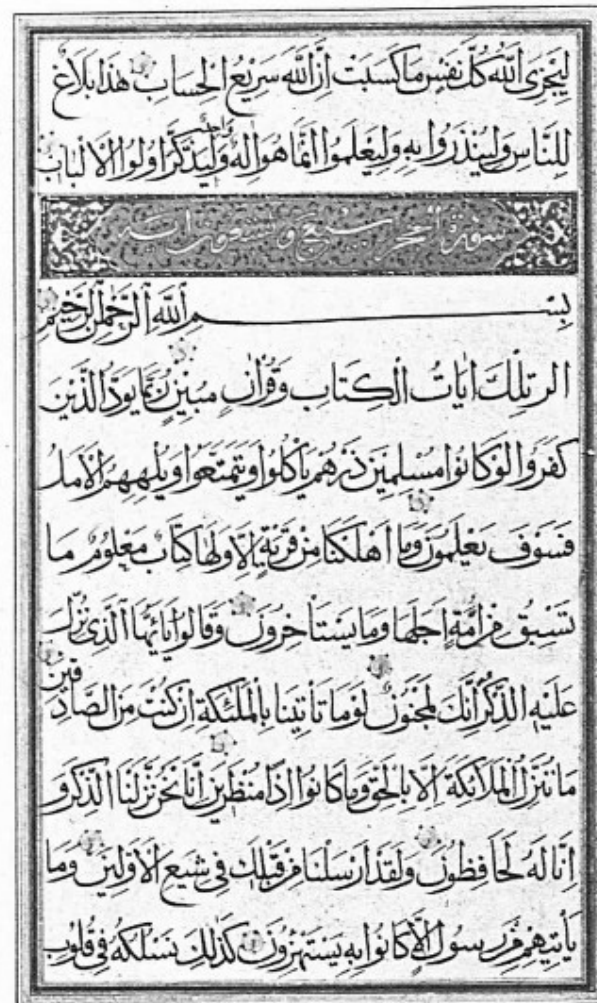 لِيَجْزِىَ اللّٰهُ كُلَّ نَفْسٍ مَا كَسَبَتْ اِنَّ اللّٰهَ سَرِيعُ الْحِسَابِ هٰذَا بَلَاغٌ
لِلنَّاسِ وَلِيُنْذَرُوا بِهِ وَلِيَعْلَمُوا اَنَّمَا هُوَ اِلٰهٌ وَاحِدٌ وَلِيَذَّكَّرَ اُولُوا الْاَلْبَابِ
سورة الحجر تسع وتسعون اية
بِسْمِ اللّٰهِ الرَّحْمٰنِ الرَّحِيمِ
الر تِلْكَ اٰيَاتُ الْكِتَابِ وَقُرْاٰنٍ مُبِينٍ رُبَمَا يَوَدُّ الَّذِينَ
كَفَرُوا لَوْ كَانُوا مُسْلِمِينَ ذَرْهُمْ يَأْكُلُوا وَيَتَمَتَّعُوا وَيُلْهِهِمُ الْاَمَلُ
فَسَوْفَ يَعْلَمُونَ وَمَا اَهْلَكْنَا مِنْ قَرْيَةٍ اِلَّا وَلَهَا كِتَابٌ مَعْلُومٌ مَا
تَسْبِقُ مِنْ اُمَّةٍ اَجَلَهَا وَمَا يَسْتَأْخِرُونَ وَقَالُوا يَا اَيُّهَا الَّذِى نُزِّلَ
عَلَيْهِ الذِّكْرُ اِنَّكَ لَمَجْنُونٌ لَوْ مَا تَأْتِينَا بِالْمَلٰئِكَةِ اِنْ كُنْتَ مِنَ الصَّادِقِينَ
مَا نُنَزِّلُ الْمَلَائِكَةَ اِلَّا بِالْحَقِّ وَمَا كَانُوا اِذًا مُنْظَرِينَ اِنَّا نَحْنُ نَزَّلْنَا الذِّكْرَ وَ
اِنَّا لَهُ لَحَافِظُونَ وَلَقَدْ اَرْسَلْنَا مِنْ قَبْلِكَ فِى شِيَعِ الْاَوَّلِينَ وَمَا
يَأْتِيهِمْ مِنْ رَسُولٍ اِلَّا كَانُوا بِهِ يَسْتَهْزِؤُنَ كَذٰلِكَ نَسْلُكُهُ فِى قُلُوبِ